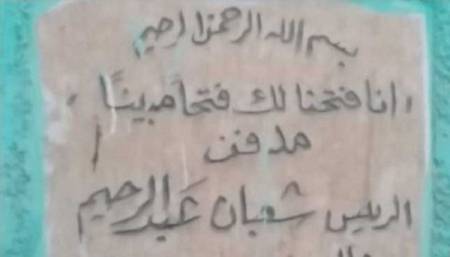 بسم الله الرحمن الرحيم
انا فتحنا لك فتحا مبينًا
مدفن
الريس شعبان عبدالرحيم